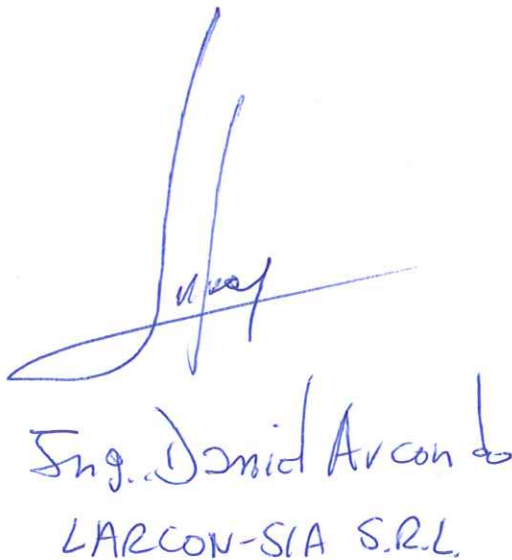 Ing. Daniel Arcondo
LARCON-SIA S.R.L.